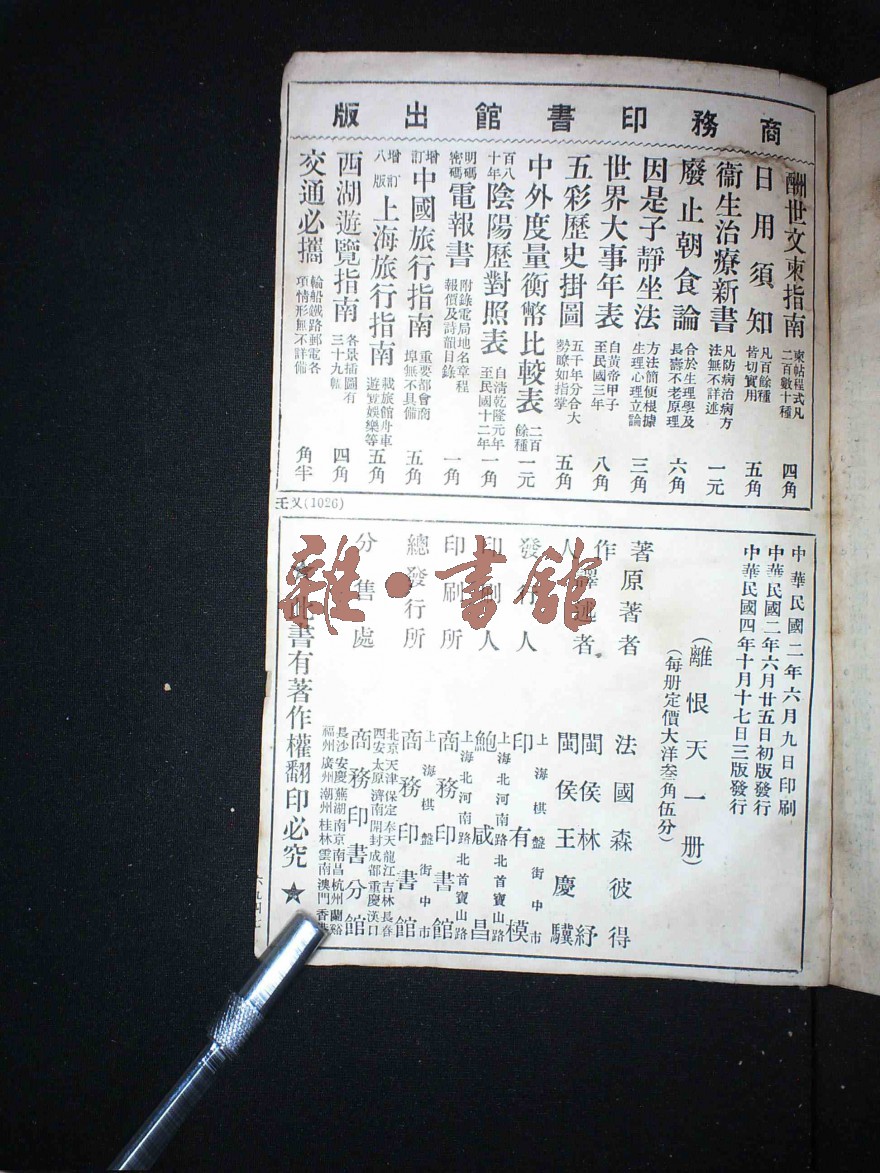 商務印書館出版
酬世文柬指南 柬帖程式凡二百數十種 四角
日用須知 凡百餘種皆切實用 五角
衞生治療新書 凡防病治病方法無不詳述 一元
廢止朝食論 合於生理學及長壽不老原理 六角
因是子靜坐法 方法簡便根據生理心理立論 三角
世界大事年表 自黃帝甲子至民國三年 八角
五彩歷史掛圖 五千年分合大勢瞭如指掌 五角
中外度量衡幣比較表 二百餘種 一元
百八十年陰陽歷對照表 自清乾隆元年至民國十二年 一角
明碼密碼電報書 附錄電局地名章程報價及詩韻目錄 一角
增訂中國旅行指南 重要都會商埠無不具備 五角
增訂八版上海旅行指南 載旅館舟車遊覽娛樂等 五角
西湖遊覽指南 各景插圖有三十九幅 四角
交通必攜 輪船鐵路郵電各項情形無不詳備 角半
壬㐅(1026)
中華民國二年六月九日印刷
中華民國二年六月廿五日初版發行
中華民國四年十月十七日三版發行
(離恨天一册)
(每册定價大洋叁角伍分)
著作人
原著者 法國森彼得
譯述者 閩侯林紓 閩侯王慶驥
發行人 上海棋盤街中市 印有模
印刷人 上海北河南路北首寶山路 鮑咸昌
印刷所 上海北河南路北首寶山路 商務印書館
總發行所 上海棋盤街中市 商務印書館
分售處 北京天津保定奉天龍江吉林長春西安太原濟南開封成都重慶漢口 商務印書分館
長沙安慶蕪湖南京南昌杭州蘭谿福州廣州潮州桂林雲南澳門香港
★此書有著作權翻印必究★
六九四七
雜·書館